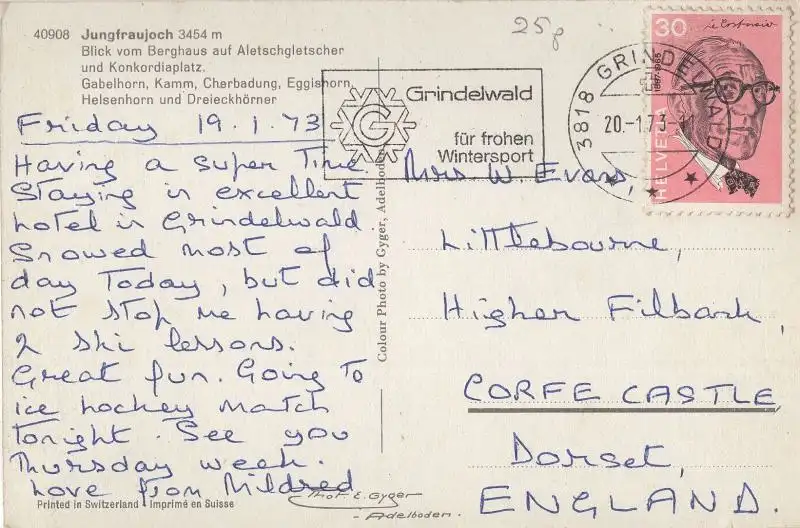 25p
40908 Jungfraujoch 3454 m
Blick vom Berghaus auf Aletschgletscher
und Konkordiaplatz.
Gabelhorn, Kamm, Cherbadung, Eggishorn,
Helsenhorn und Dreieckhörner
Friday 19.1.73
Having a super Time.
Staying in excellent
hotel in Grindelwald.
Snowed most of
day Today, but did
not stop me having
2 ski lessons.
Great fun. Going To
ice hockey match
Tonight. See you
Thursday week.
Love from Mildred
Printed in Switzerland • Imprimé en Suisse
Phot. E. Gyger
- Adelboden.
Colour Photo by Gyger, Adelboden
G
Grindelwald
für frohen
Wintersport
3818 GRINDELWALD
20.-1.73.
30
Le Corbusier
1887-1965
HELVETIA
Mrs W. Evans,
Littlebourne,
Higher Filbank,
CORFE CASTLE,
Dorset,
ENGLAND.